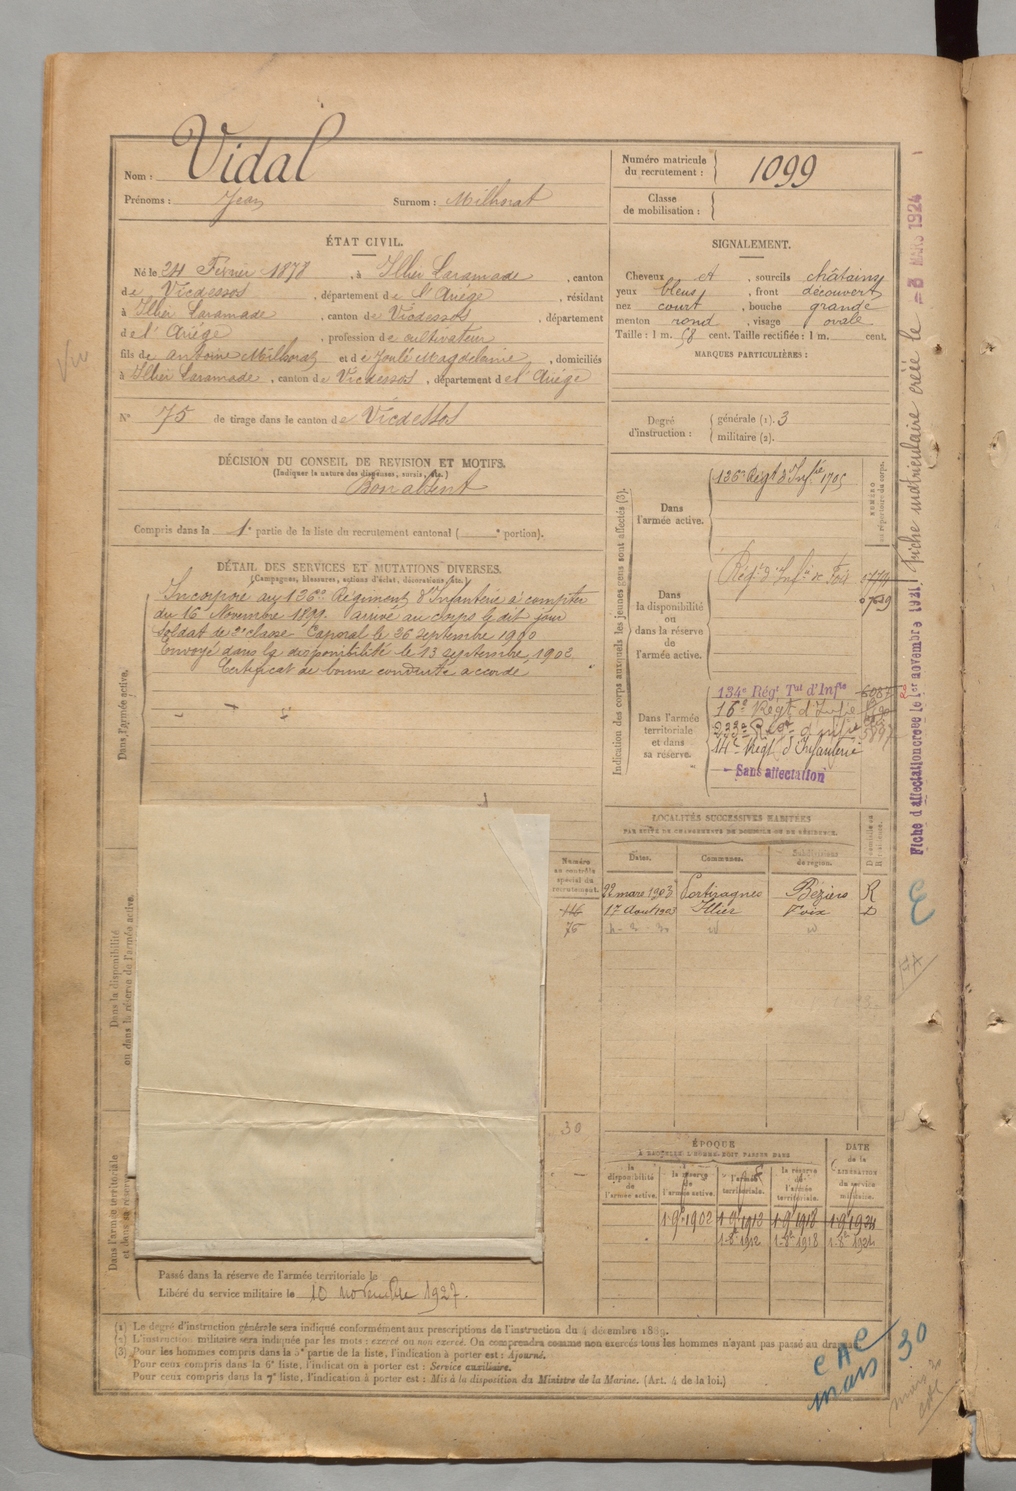 Vidal
Nom :
Prénoms : Jean Surnom : Milhorat
Numéro matricule du recrutement : 1099
Classe de mobilisation :
ÉTAT CIVIL.
Né le 24 Février 1878, à Illier Laramade, canton
de Vicdessos, département de l'Ariège, résidant
à Illier Laramade, canton de Vicdessos, département
de l'Ariège, profession de cultivateur
fils de Antoine Milhorat et de Joulé Magdelaine, domiciliés
à Illier Laramade, canton de Vicdessos, département de l'Ariège
N° 75 de tirage dans le canton de Vicdessos
SIGNALEMENT.
Cheveux et, sourcils châtains
yeux bleus, front découvert
nez court, bouche grande
menton rond, visage ovale
Taille : 1 m. 58 cent. Taille rectifiée : 1 m. cent.
MARQUES PARTICULIÈRES :
Degré d'instruction : générale (1). 3
militaire (2).
DÉCISION DU CONSEIL DE REVISION ET MOTIFS.
(Indiquer la nature des dispenses, sursis, etc.)
Bon absent
Compris dans la 1e partie de la liste du recrutement cantonal ( e portion).
DÉTAIL DES SERVICES ET MUTATIONS DIVERSES.
(Campagnes, blessures, actions d'éclat, décorations, etc.)
Dans l'armée active.
Incorporé au 136e Régiment d'Infanterie à compter
du 16 Novembre 1899. arrivé au corps le dit jour
soldat de 2e classe Caporal le 26 septembre 1900
Envoyé dans la disponibilité le 13 septembre 1902
Certificat de bonne conduite accordé
Indication des corps auxquels les jeunes gens sont affectés (3).
NUMÉRO au répertoire du corps.
Dans l'armée active.
136e Régt d'Infrie 1705
Dans la disponibilité ou dans la réserve de l'armée active.
Régt d'Infie de Foix
Dans l'armée territoriale et dans sa réserve.
134e Régt Tal d'Infie
16e Régt d'Infie
14e Régt d'Infanterie
Sans affectation
LOCALITÉS SUCCESSIVES HABITÉES
PAR SUITE DE CHANGEMENTS DE DOMICILE OU DE RÉSIDENCE.
Dates. Communes. Subdivisions de région. Domicile ou Résidence.
22 mars 1903 Portiragnes Béziers R
17 Aout 1903 Illier Foix D
Numéro au contrôle spécial du recrutement.
116
75
30
Dans la disponibilité ou dans la réserve de l'armée active.
Dans l'armée territoriale et dans sa réserve
ÉPOQUE
À LAQUELLE L'HOMME DOIT PASSER DANS
la disponibilité de l'armée active.
la réserve de l'armée active.
l'armée territoriale.
la réserve de l'armée territoriale.
DATE de la LIBÉRATION du service militaire.
1 9e 1902 1 9e 1912 1 9e 1918 1 9e 1924
1-8e 1912 1-8e 1918 1-8e 1924
Passé dans la réserve de l'armée territoriale le
Libéré du service militaire le 10 novembre 1927.
(1) Le degré d'instruction générale sera indiqué conformément aux prescriptions de l'instruction du 4 décembre 1889.
(2) L'instruction militaire sera indiquée par les mots : exercé ou non exercé. On comprendra comme non exercés tous les hommes n'ayant pas passé au drapeau.
(3) Pour les hommes compris dans la 5e partie de la liste, l'indication à porter est : Ajourné.
Pour ceux compris dans la 6e liste, l'indication à porter est : Service auxiliaire.
Pour ceux compris dans la 7e liste, l'indication à porter est : Mis à la disposition du Ministre de la Marine. (Art. 4 de la loi.)
Fiche d'affectation créée le 1er novembre 1921. Fiche matriculaire créée le -3 MARS 1924
mars 30